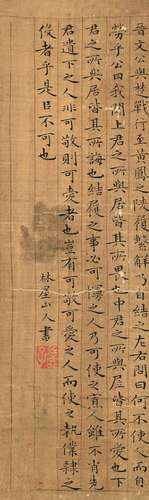 晉文公與楚戰行至黃鳳之陵履繫解乃自結之左右問曰何不使人而自
勞乎公曰我聞上君之所與居皆其所畏也中君之所與居皆其所愛也下
君之所與居皆其所誨也結履之事必可之人乃可使之寡人雖不肖先
君遺下之人非可敬則可愛者也豈有可敬可愛之人而使之執僕隸之
役者乎是臣不可也
林屋山人書